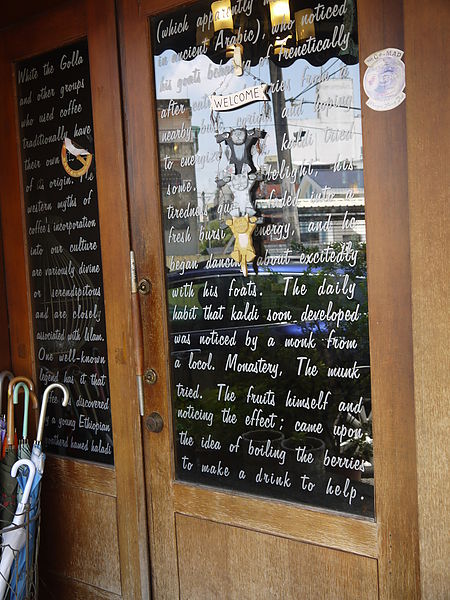 White the Golla
and other groups
who used coffee
traditionally have
their own
of its origin. The
western myths of
coffee's incorporation
into our culture
are variously divine
or serendipitous
and are closely
associated with Islam.
One well-known
legend has it that
discovered
by a young Ethiopian
goatherd named kaladi
(which apparently
in ancient Arabic), who noticed
his goats behaving frenetically
from a
WELCOME
after
nearby
and hoping
kaldi tried
to energize
some.
his
tiredness
faded into a
fresh burst
energy, and he
began dancing about excitedly
with his foats. The daily
habit that kaldi soon developed
was noticed by a monk from
a locol. Monastery, The munk
tried. The fruits himself and
noticing the effect; came upon
the idea of boiling the berries
to make a drink to help.